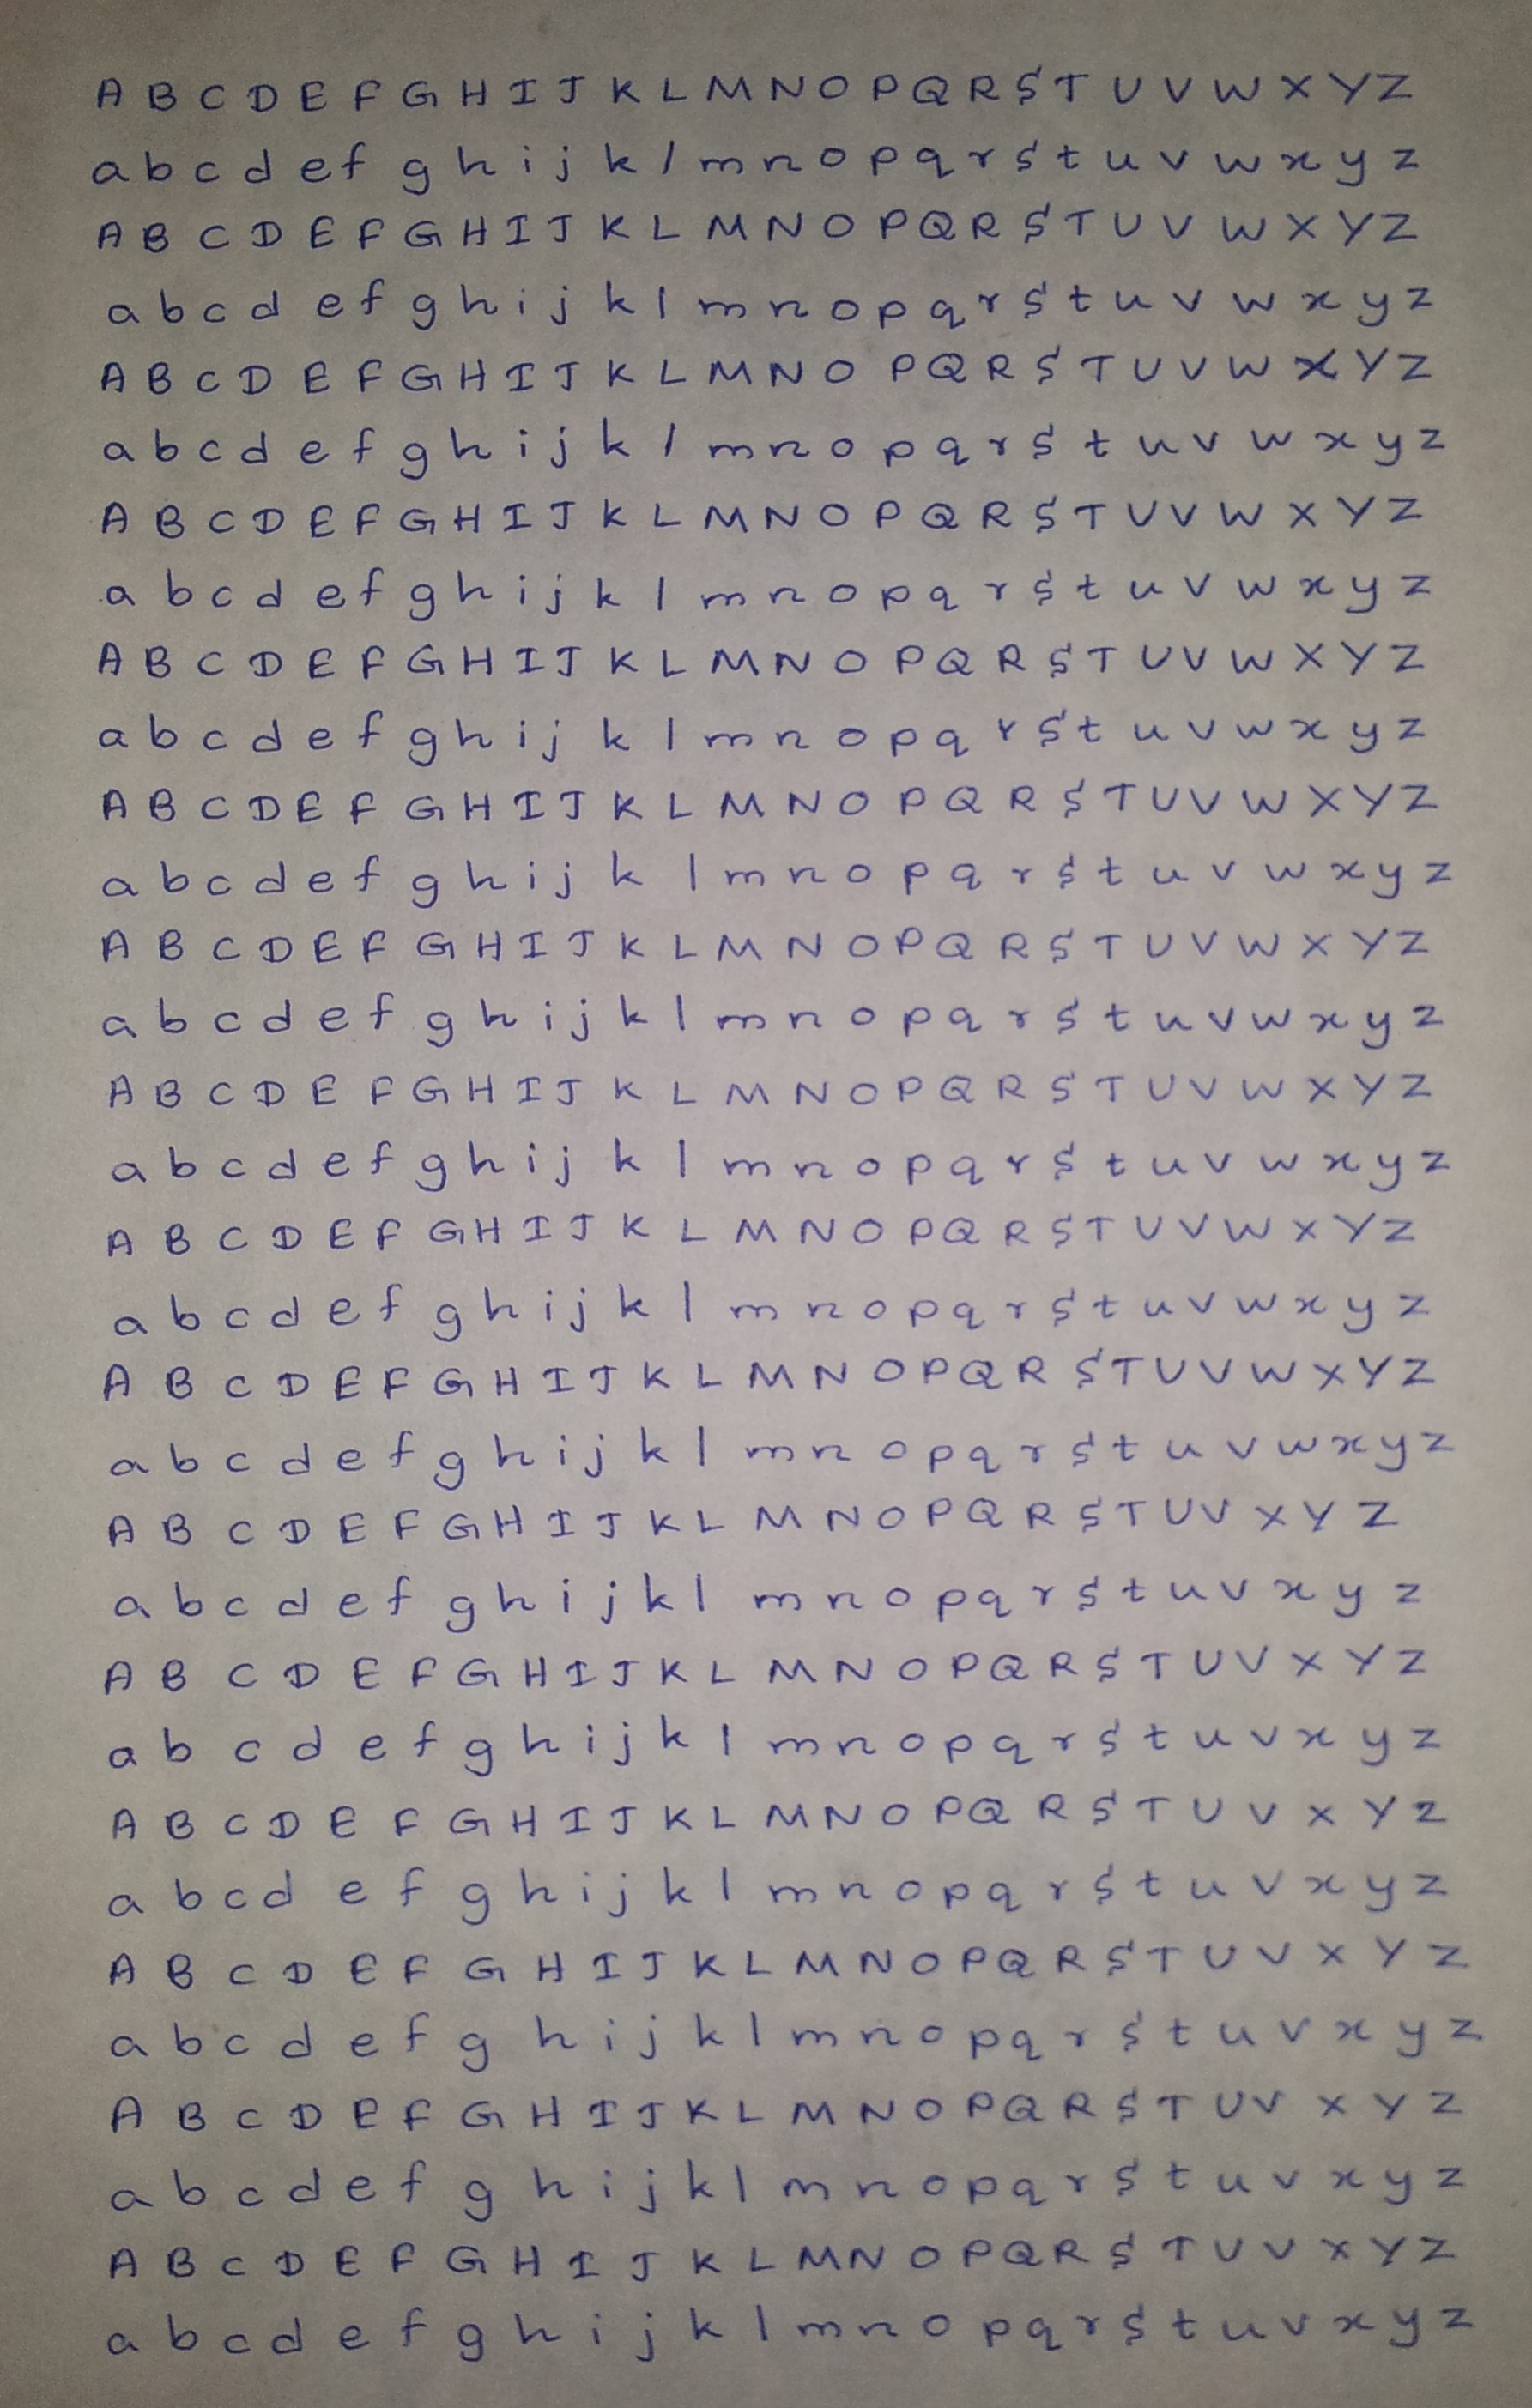 A B C D E F G H I J K L M N O P Q R S T U V W X Y Z
a b c d e f g h i j k l m n o p q r s t u v w x y z
A B C D E F G H I J K L M N O P Q R S T U V W X Y Z
a b c d e f g h i j k l m n o p q r s t u v w x y z
A B C D E F G H I J K L M N O P Q R S T U V W X Y Z
a b c d e f g h i j k l m n o p q r s t u v w x y z
A B C D E F G H I J K L M N O P Q R S T U V W X Y Z
a b c d e f g h i j k l m n o p q r s t u v w x y z
A B C D E F G H I J K L M N O P Q R S T U V W X Y Z
a b c d e f g h i j k l m n o p q r s t u v w x y z
A B C D E F G H I J K L M N O P Q R S T U V W X Y Z
a b c d e f g h i j k l m n o p q r s t u v w x y z
A B C D E F G H I J K L M N O P Q R S T U V W X Y Z
a b c d e f g h i j k l m n o p q r s t u v w x y z
A B C D E F G H I J K L M N O P Q R S T U V W X Y Z
a b c d e f g h i j k l m n o p q r s t u v w x y z
A B C D E F G H I J K L M N O P Q R S T U V W X Y Z
a b c d e f g h i j k l m n o p q r s t u v w x y z
A B C D E F G H I J K L M N O P Q R S T U V W X Y Z
a b c d e f g h i j k l m n o p q r s t u v w x y z
A B C D E F G H I J K L M N O P Q R S T U V X Y Z
a b c d e f g h i j k l m n o p q r s t u v x y z
A B C D E F G H I J K L M N O P Q R S T U V X Y Z
a b c d e f g h i j k l m n o p q r s t u v x y z
A B C D E F G H I J K L M N O P Q R S T U V X Y Z
a b c d e f g h i j k l m n o p q r s t u v x y z
A B C D E F G H I J K L M N O P Q R S T U V X Y Z
a b c d e f g h i j k l m n o p q r s t u v x y z
A B C D E F G H I J K L M N O P Q R S T U V X Y Z
a b c d e f g h i j k l m n o p q r s t u v x y z
A B C D E F G H I J K L M N O P Q R S T U V X Y Z
a b c d e f g h i j k l m n o p q r s t u v x y z